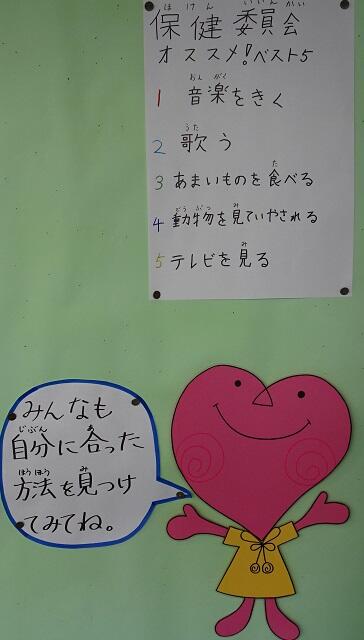 保健委員会
オススメ！ベスト5
1 音楽をきく
2 歌う
3 あまいものを食べる
4 動物を見ていやされる
5 テレビを見る
みんなも
自分に合った
方法を見つけ
てみてね。